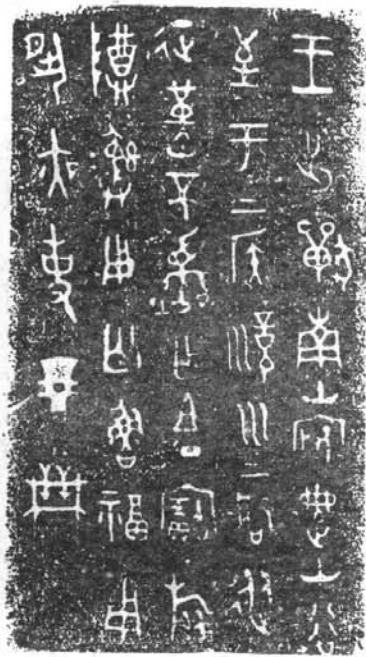 王出獸南山山谷
至于上侯滰川上啟從
征堇不乍且丁寶旅
彝用匄魯福用
夙夜事戊箙